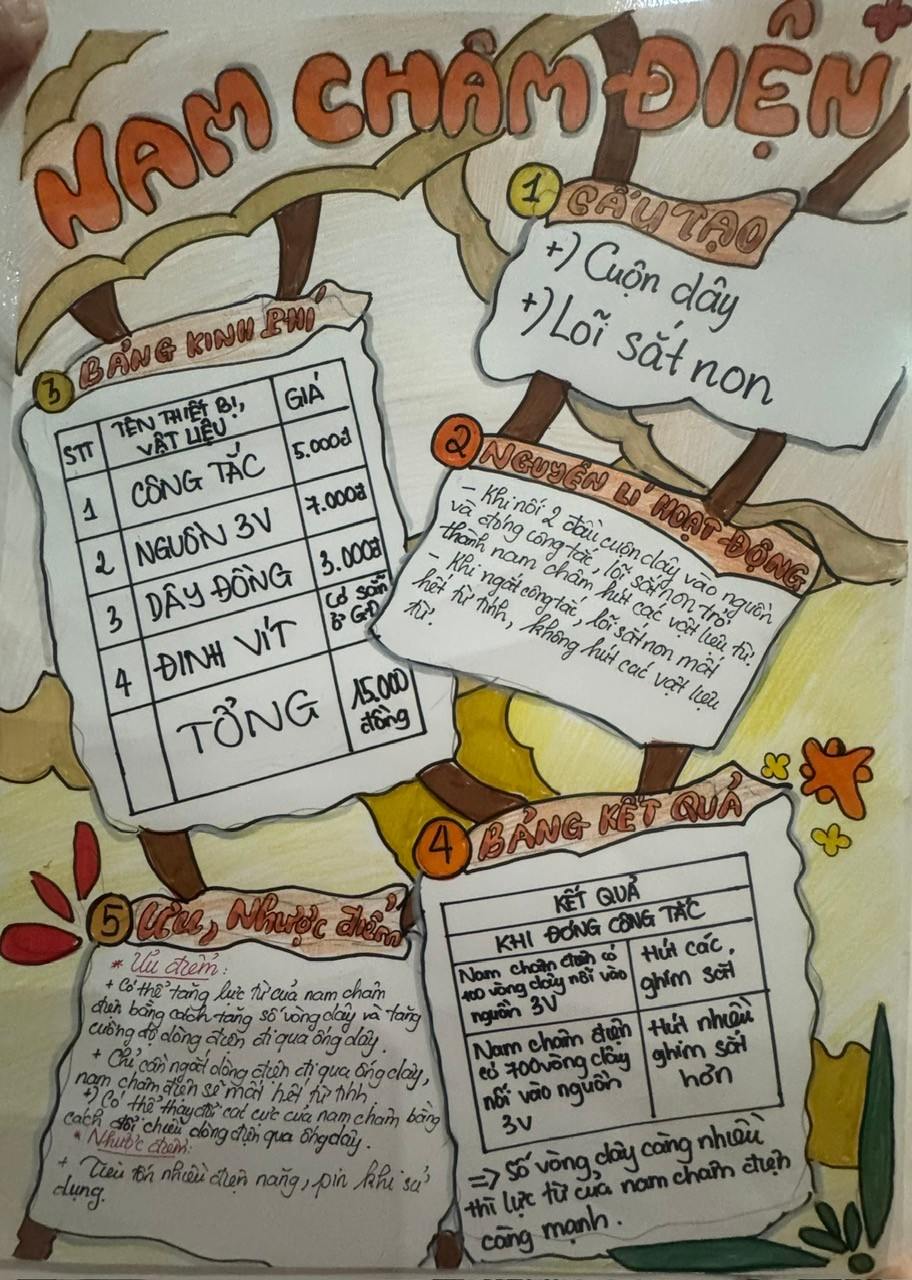 NAM CHÂM ĐIỆN
1 CẤU TẠO
+) Cuộn dây
+) Lõi sắt non
2 NGUYÊN LÍ HOẠT ĐỘNG
- Khi nối 2 đầu cuộn dây vào nguồn
và đóng công tắc, lõi sắt non trở
thành nam châm hút các vật liệu từ.
- Khi ngắt công tắc, lõi sắt non mất
hết từ tính, không hút các vật liệu
từ.
3 BẢNG KINH PHÍ
STT TÊN THIẾT BỊ, GIÁ
VẬT LIỆU
1 CÔNG TẮC 5.000đ
2 NGUỒN 3V 7.000đ
3 DÂY ĐỒNG 3.000đ
4 ĐINH VÍT Có sẵn
ở GĐ
TỔNG 15.000
đồng
4 BẢNG KẾT QUẢ
KẾT QUẢ
KHI ĐÓNG CÔNG TẮC
Nam châm điện có Hút các,
100 vòng dây nối vào ghim sắt
nguồn 3V
Nam châm điện Hút nhiều
có 700 vòng dây ghim sắt
nối vào nguồn hơn
3V
=> Số vòng dây càng nhiều
thì lực từ của nam châm điện
càng mạnh.
5 Ưu, Nhược điểm
* Ưu điểm:
+ Có thể tăng lực từ của nam châm
điện bằng cách tăng số vòng dây và tăng
cường độ dòng điện đi qua ống dây.
+ Chỉ cần ngắt dòng điện đi qua ống dây,
nam châm điện sẽ mất hết từ tính.
+) Có thể thay đổi các cực của nam châm bằng
cách đổi chiều dòng điện qua ống dây.
* Nhược điểm:
+ Tiêu tốn nhiều điện năng, pin khi sử
dụng.